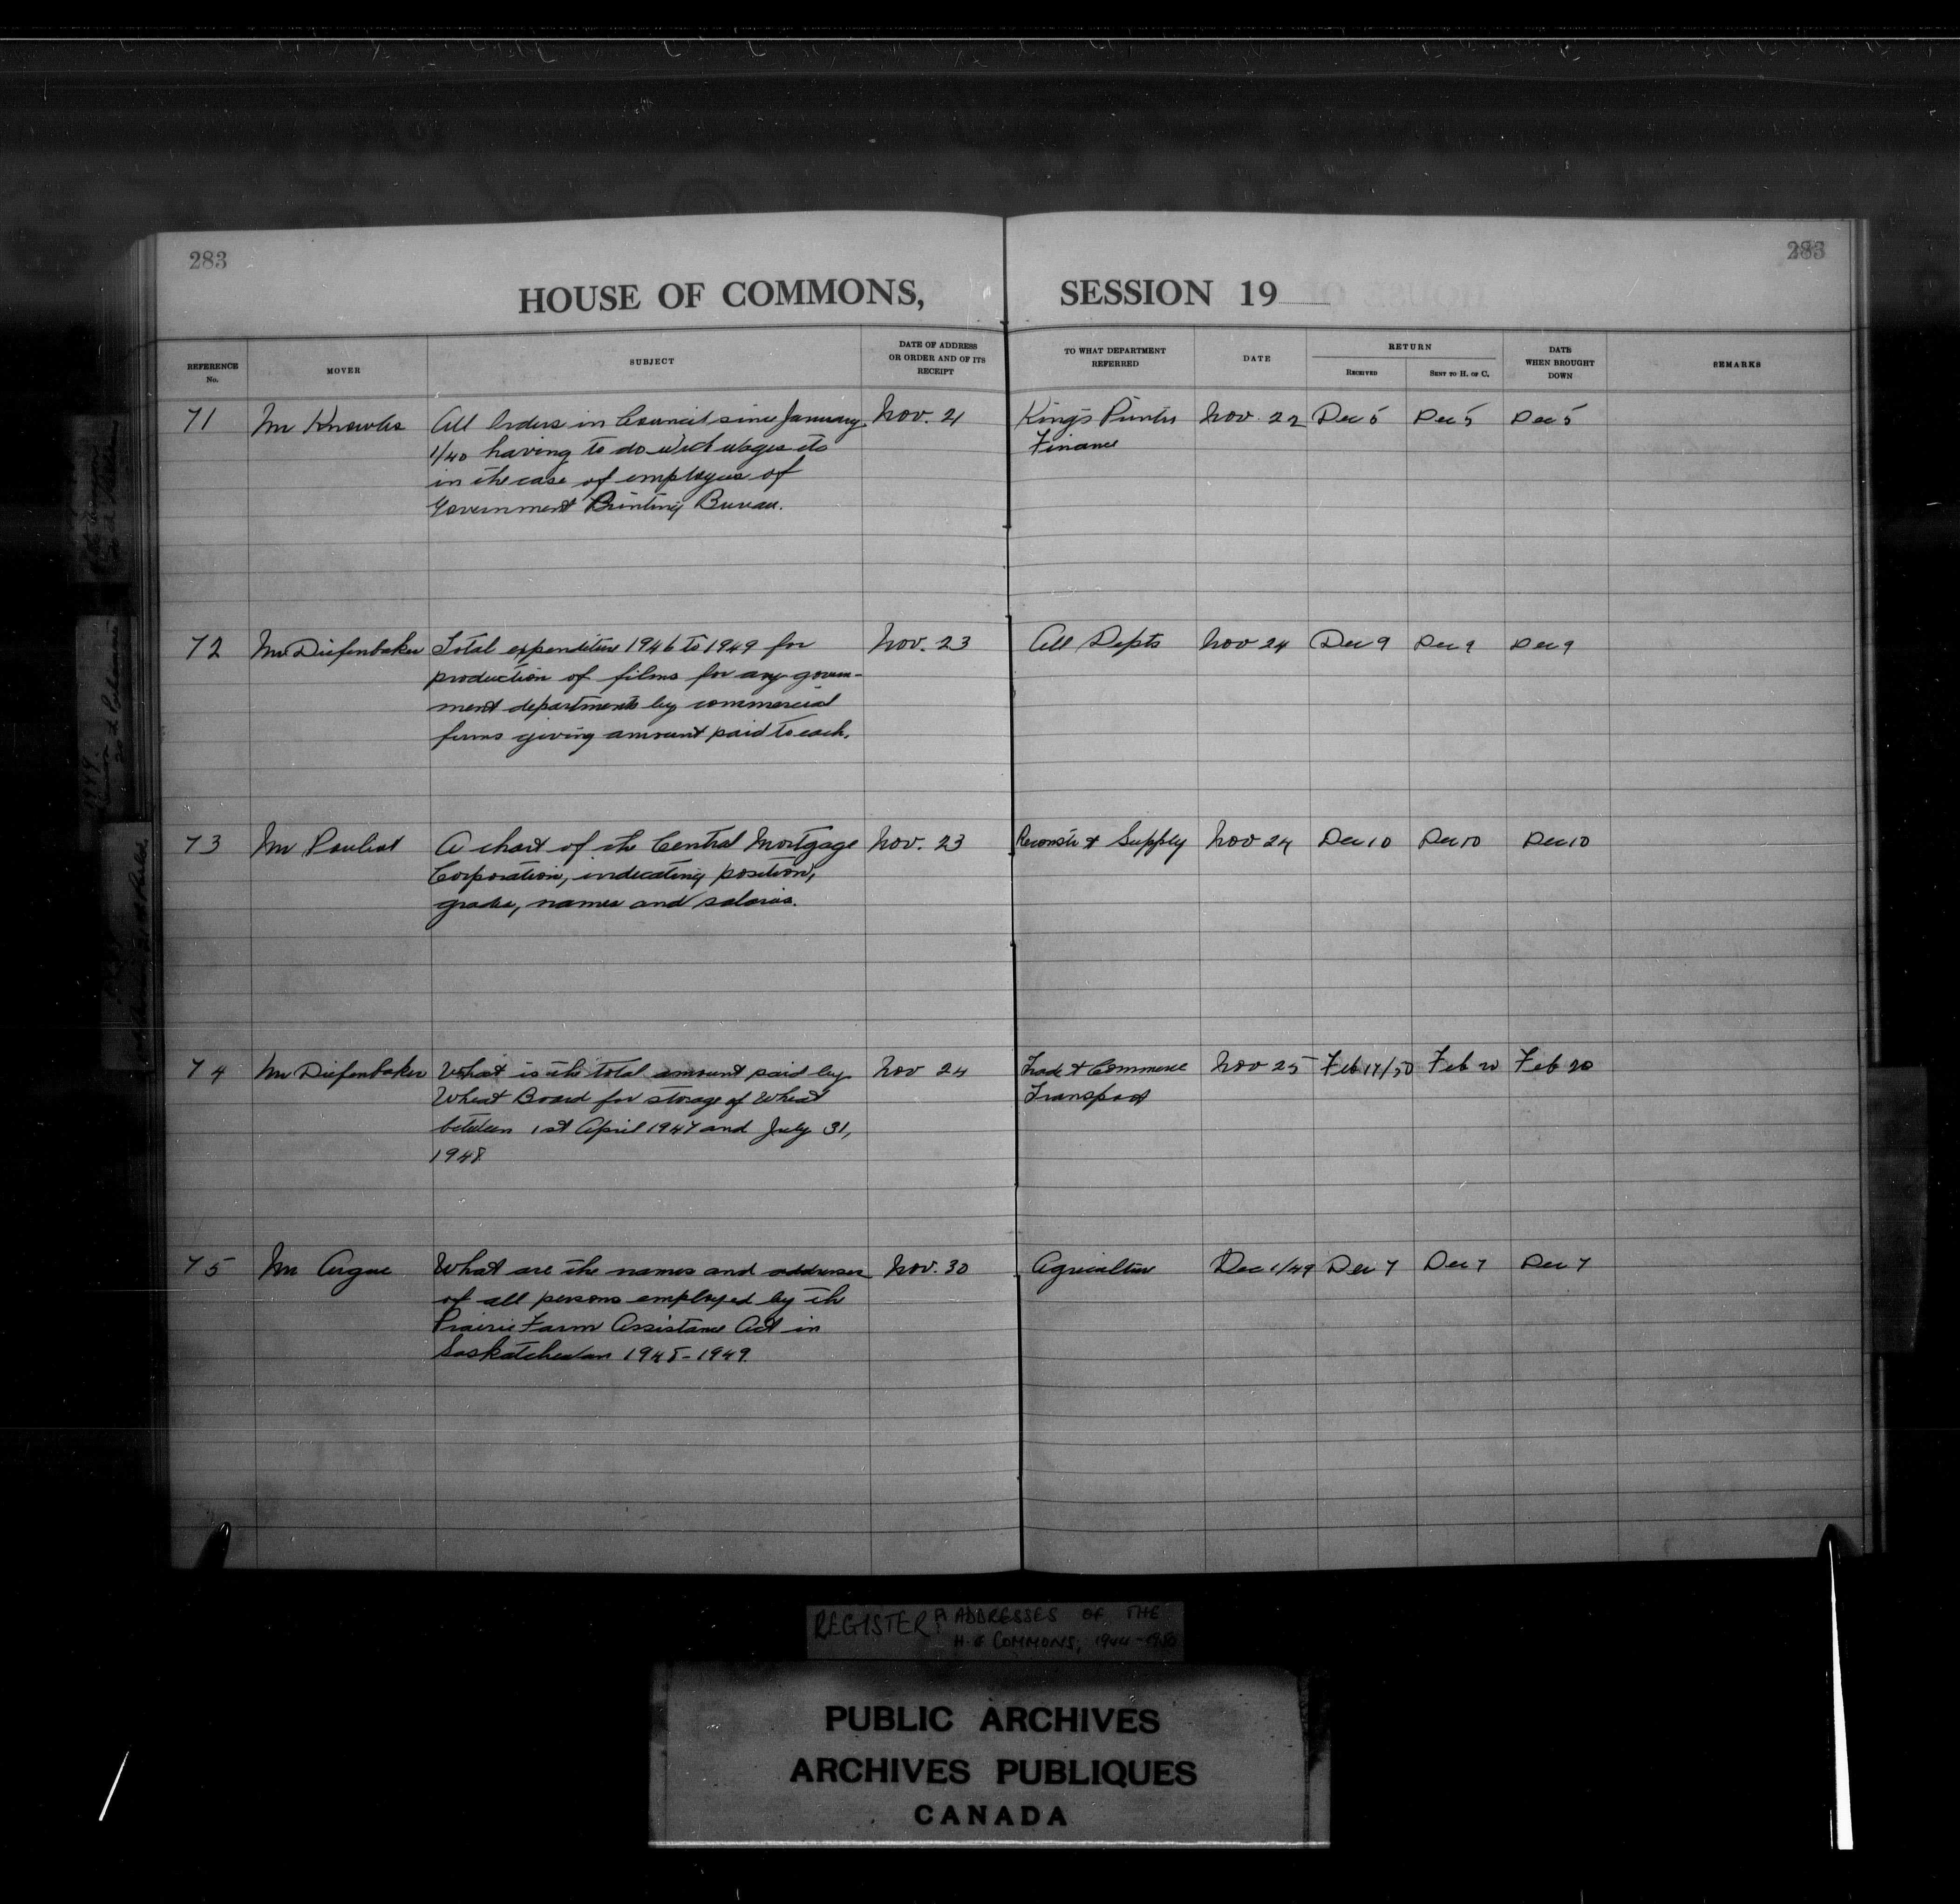 283
283
HOUSE OF COMMONS, SESSION 19
REFERENCE No.
MOVER
SUBJECT
DATE OF ADDRESS OR ORDER AND OF ITS RECEIPT
TO WHAT DEPARTMENT REFERRED
DATE
RETURN
RECEIVED
SENT TO H. OF C.
DATE WHEN BROUGHT DOWN
REMARKS
71 Mr Knowles All Orders in Council since January Nov. 21 Kings Printer Nov. 22 Dec 5 Dec 5 Dec 5
1/40 having to do with wages etc Finance
in the case of employees of
Government Printing Bureau.
72 Mr Diefenbaker Total expenditure 1946 to 1949 for Nov. 23 All Depts Nov 24 Dec 9 Dec 9 Dec 9
production of films for any govern-
ment departments by commercial
firms giving amount paid to each.
73 Mr Pouliot A chart of the Central Mortgage Nov. 23 Reconstr & Supply Nov 24 Dec 10 Dec 10 Dec 10
Corporation, indicating position,
grades, names and salaries.
74 Mr Diefenbaker What is the total amount paid by Nov 24 Trade & Commerce Nov 25 Feb 17/50 Feb 20 Feb 20
Wheat Board for storage of Wheat Transport
between 1st April 1947 and July 31,
1948
75 Mr Argue What are the names and addresses Nov. 30 Agriculture Dec 1/49 Dec 7 Dec 7 Dec 7
of all persons employed by the
Prairie Farm Assistance Act in
Saskatchewan 1948-1949.
REGISTER OF ADDRESSES OF THE
H. of COMMONS, 1944-1950
PUBLIC ARCHIVES
ARCHIVES PUBLIQUES
CANADA